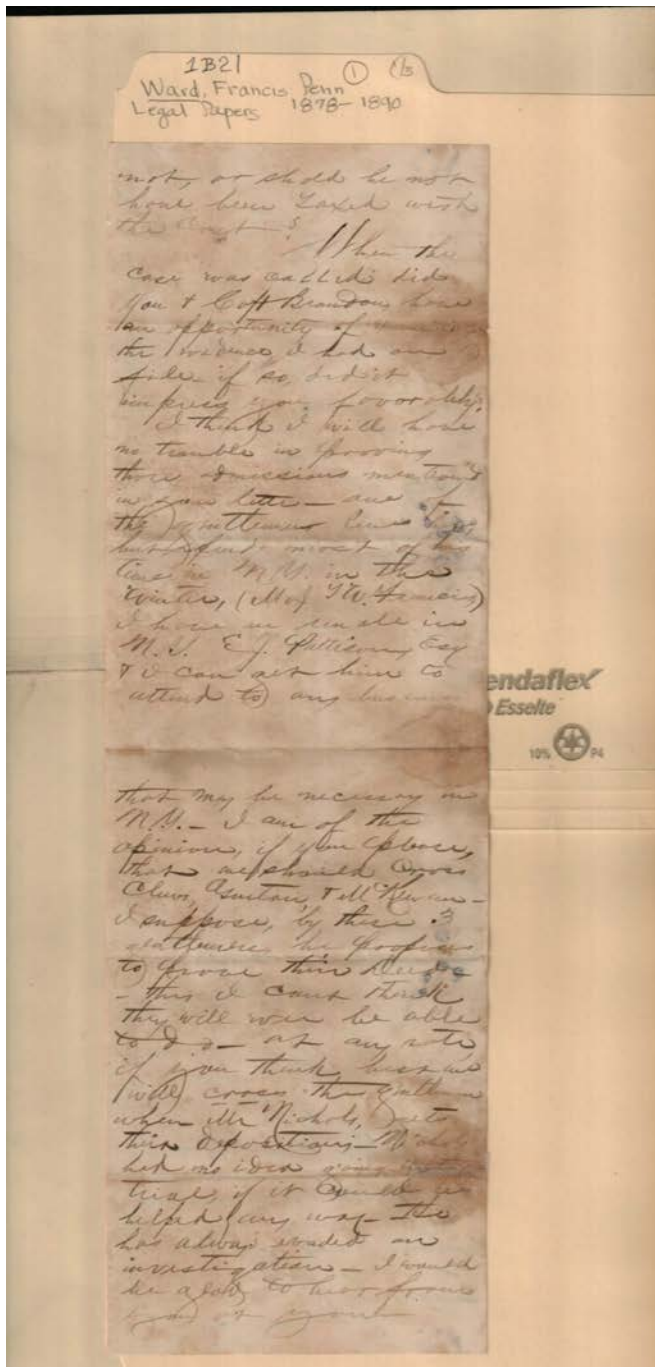 1B21 ① 1/5
Ward, Francis Penn
Legal Papers 1878-1890
not, or shold he not
have been taxed with
the Cost?
When the
case was called did
you & Capt Brandon have
an opportunity of
the evidence I had on
file if so, did it
impress you favorably.
I think I will have
no trouble in prooving
those admissions mention'd
in your letter – one of
the gentlemen lives
but spends most of his
time in N.Y. in the
winter,
I have in
N.Y. E. J. Pattison, Esq
& I can get him to
attend to any business
endaflex
Esselte
10% P4
that may be necessary in
N.Y. – I am of the
opinion, if you please,
that we should cross
& McKewan –
I suppose, by these 3
gentlemen he proposes
to prove their Deeds
– this I cant think
they will ever be able
to do – at any rate,
if you think best we
will cross the gentlemen
when Mr Nichols, gets
their depositions – Nichols
had no idea going into
trial, if it could be
helped any way – He
has always evaded an
investigation – I would
be glad to hear from
you at your